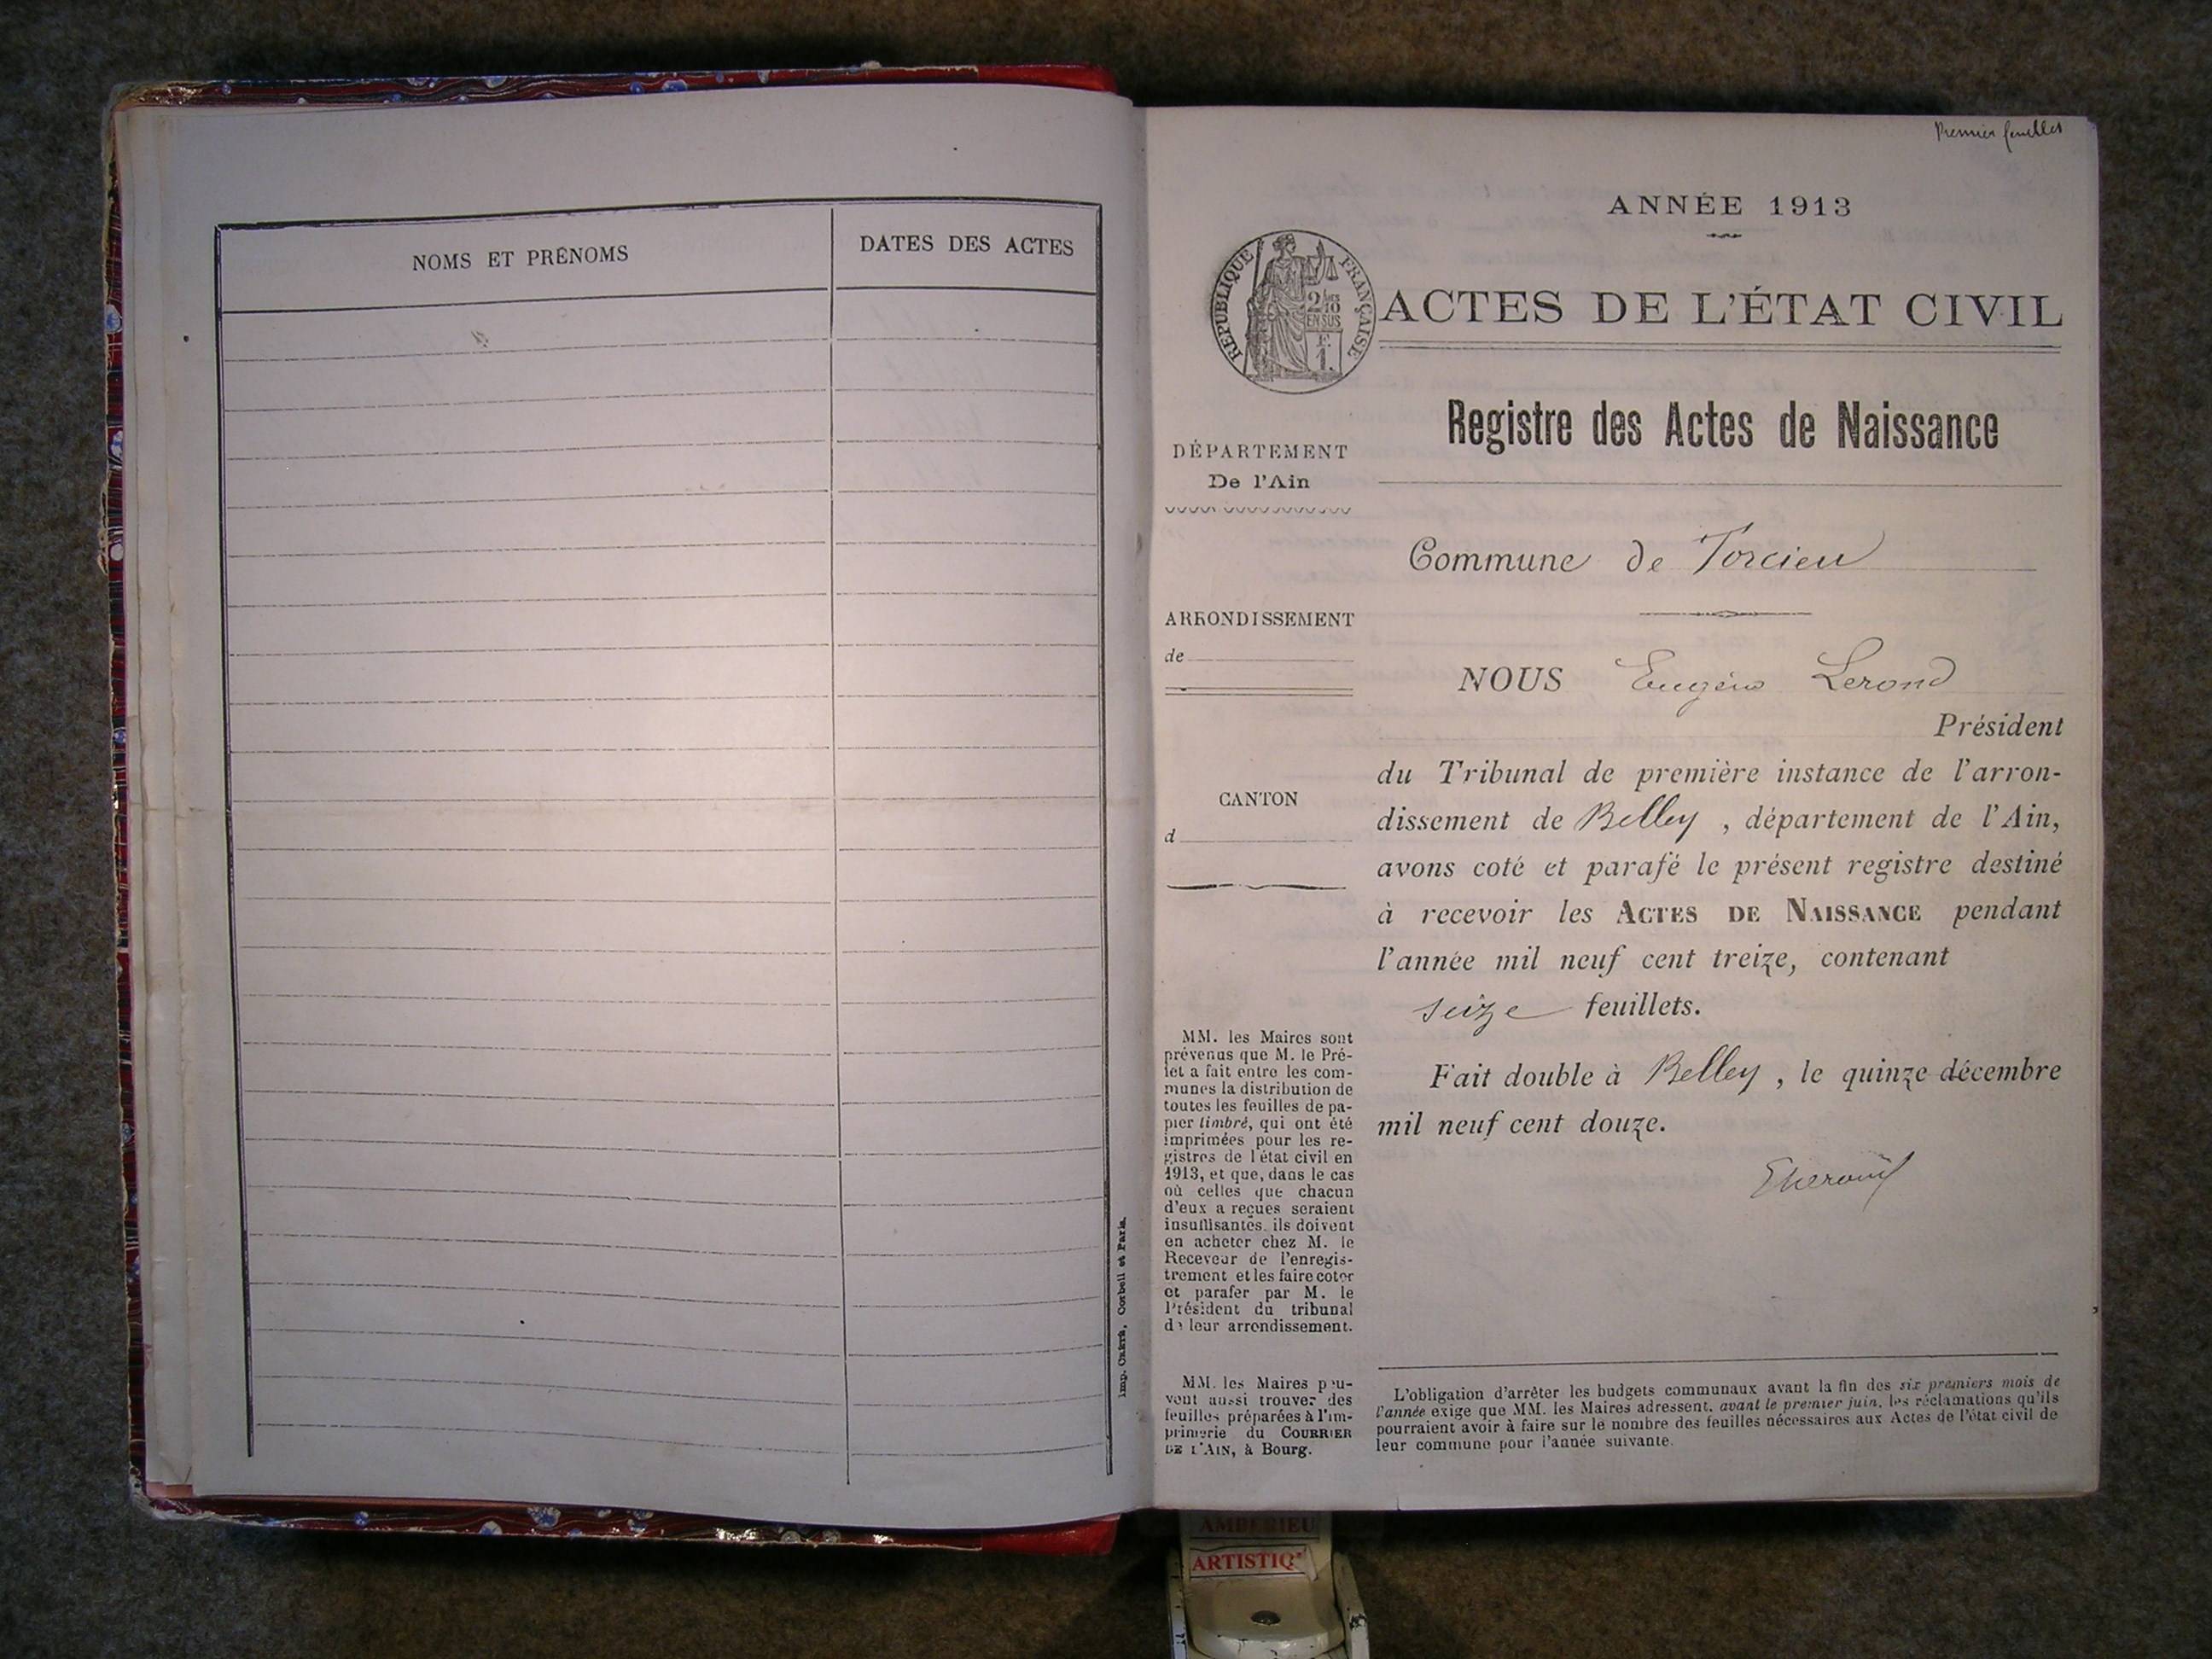 NOMS ET PRÉNOMS
DATES DES ACTES
Imp. CRÉTÉ, Corbeil et Paris.
Premier feuillet
ANNÉE 1913
RÉPUBLIQUE FRANÇAISE
2/10
EN SUS
F.
1.
ACTES DE L'ÉTAT CIVIL
Registre des Actes de Naissance
DÉPARTEMENT
De l'Ain
Commune de Torcieu
ARRONDISSEMENT
de
CANTON
d
NOUS Eugène Lerond
Président
du Tribunal de première instance de l'arron-
dissement de Belley , département de l'Ain,
avons coté et parafé le présent registre destiné
à recevoir les ACTES DE NAISSANCE pendant
l'année mil neuf cent treize, contenant
seize feuillets.
Fait double à Belley , le quinze décembre
mil neuf cent douze.
MM. les Maires sont
prévenus que M. le Pré-
fet a fait entre les com-
munes la distribution de
toutes les feuilles de pa-
pier timbré, qui ont été
imprimées pour les re-
gistres de l'état civil en
1913, et que, dans le cas
où celles que chacun
d'eux a reçues seraient
insuffisantes, ils doivent
en acheter chez M. le
Receveur de l'enregis-
trement et les faire coter
et parafer par M. le
Président du tribunal
de leur arrondissement.
MM. les Maires peu-
vent aussi trouver des
feuilles préparées à l'im-
primerie du COURRIER
DE L'AIN, à Bourg.
L'obligation d'arrêter les budgets communaux avant la fin des six premiers mois de
l'année exige que MM. les Maires adressent, avant le premier juin, les réclamations qu'ils
pourraient avoir à faire sur le nombre des feuilles nécessaires aux Actes de l'état civil de
leur commune pour l'année suivante.
AMBERIEU
ARTISTIQ'